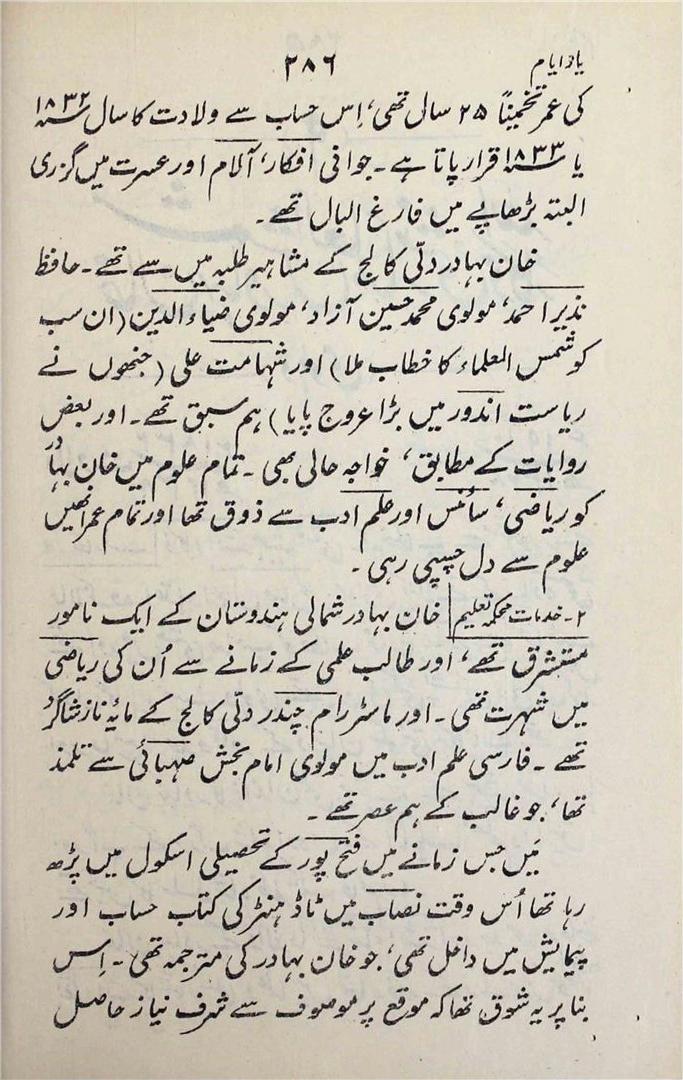 یادِ ایام ۲۸۶
کی عمر تخمیناً ۲۵ سال تھی، اِس حساب سے ولادت کا سال ۱۸۳۲ء
یا ۱۸۳۳ء قرار پاتا ہے۔ جوانی افکار، آلام اور عسرت میں گزری
البتہ بڑھاپے میں فارغ البال تھے۔
خان بہادر دلّی کالج کے مشاہیر طلبہ میں سے تھے۔ حافظ
نذیر احمد، مولوی محمد حسین آزاد، مولوی ضیاء الدین (ان سب
کو شمس العلماء کا خطاب ملا) اور شہامت علی (جنھوں نے
ریاست اندور میں بڑا عروج پایا) ہم سبق تھے۔ اور بعض
روایات کے مطابق، خواجہ حالی بھی۔ تمام علوم میں خان بہادر
کو ریاضی، سائنس اور علم ادب سے ذوق تھا اور تمام عمر انھیں
علوم سے دل چسپی رہی۔
۲۔ خدمات محکمۂ تعلیم خان بہادر شمالی ہندوستان کے ایک نامور
مستشرق تھے، اور طالب علمی کے زمانے سے اُن کی ریاضی
میں شہرت تھی۔ اور ماسٹر رام چندر دلّی کالج کے مایۂ ناز شاگرد
تھے۔ فارسی علم ادب میں مولوی امام بخش صہبائی سے تلمذ
تھا، جو غالب کے ہم عصر تھے۔
مَیں جس زمانے میں فتح پور کے تحصیلی اسکول میں پڑھ
رہا تھا اُس وقت نصاب میں ٹاڈ ہنٹر کی کتاب حساب اور
پیمایش میں داخل تھی، جو خان بہادر کی مترجمہ تھی۔ اِس
بنا پر یہ شوق تھا کہ موقع پر موصوف سے شرف نیاز حاصل